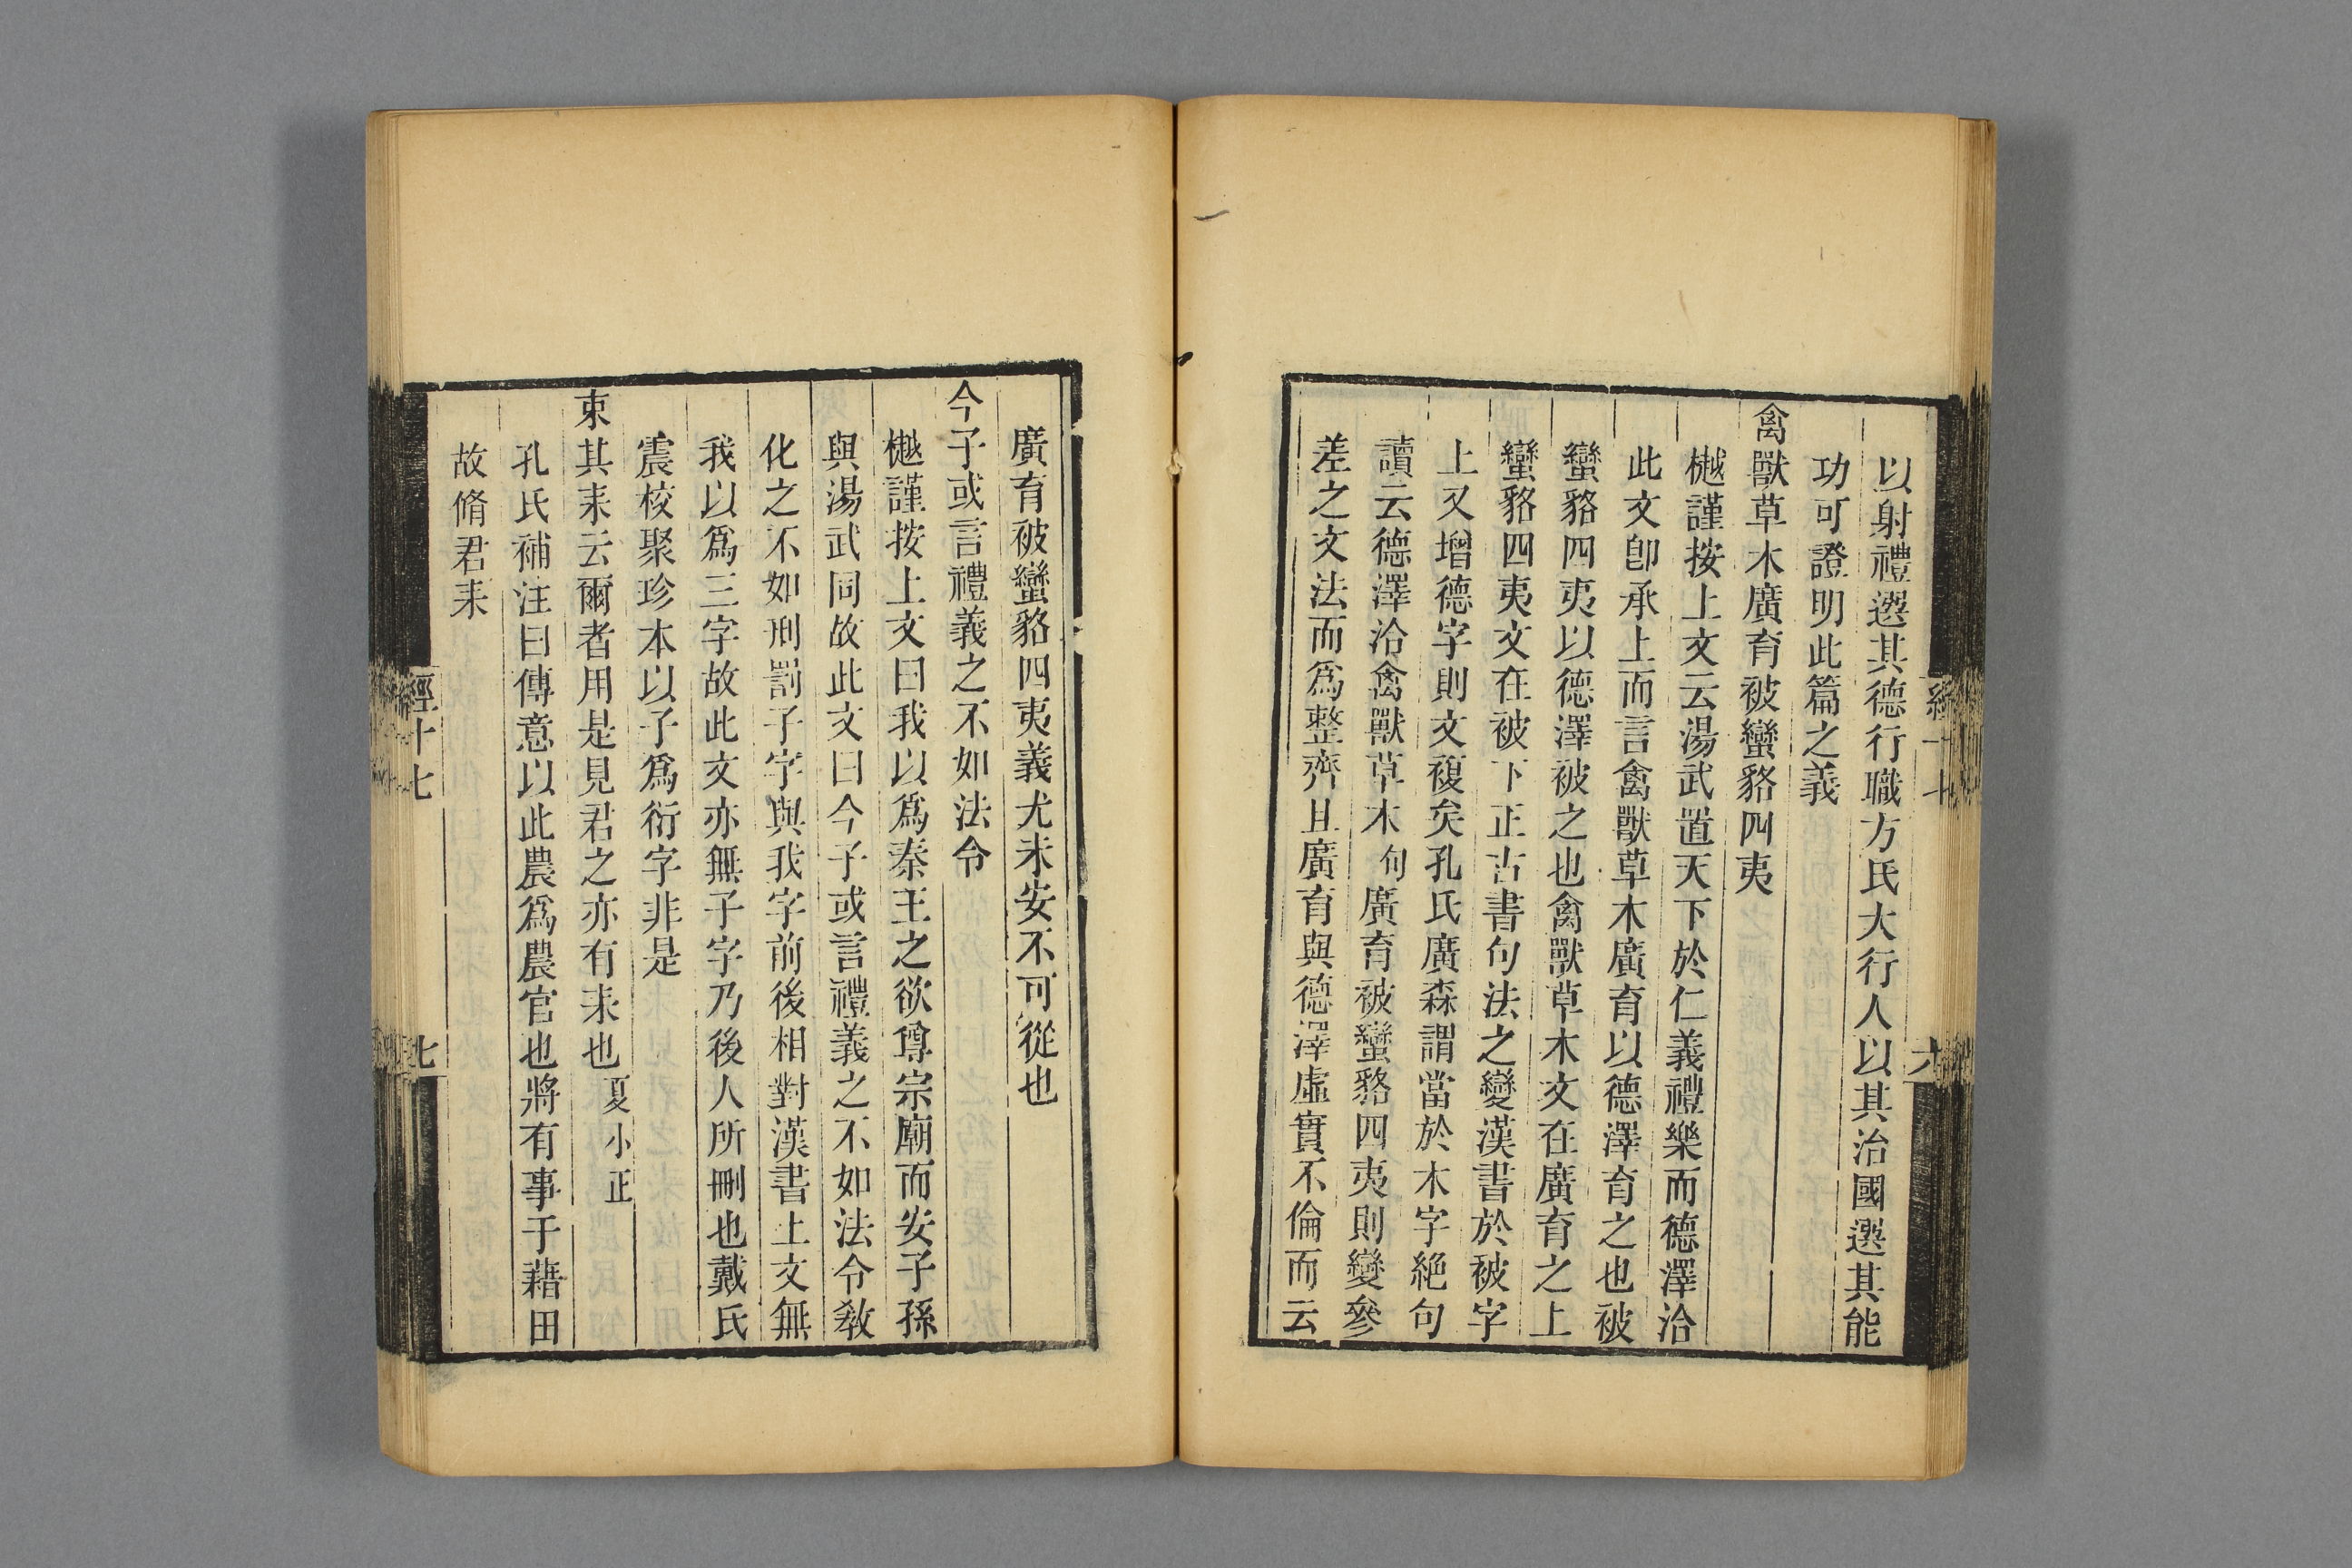 以射禮選其德行職方氏大行人以其治國選其能
功可證明此篇之義
禽獸草木廣育被蠻貉四夷
樾謹按上文云湯武置天下於仁義禮樂而德澤洽
此文卽承上而言禽獸草木廣育以德澤育之也被
蠻貉四夷以德澤被之也禽獸草木文在廣育之上
蠻貉四夷文在被下正古書句法之變漢書於被字
上又增德字則文複矣孔氏廣森謂當於木字絶句
讀云德澤洽禽獸草木句廣育被蠻貉四夷則變參
差之文法而爲整齊且廣育與德澤虛實不倫而云
六
廣育被蠻貉四夷義尤未安不可從也
今子或言禮義之不如法令
樾謹按上文曰我以爲秦王之欲尊宗廟而安子孫
與湯武同故此文曰今子或言禮義之不如法令敎
化之不如刑罰子字與我字前後相對漢書上文無
我以爲三字故此文亦無子字乃後人所刪也戴氏
震校聚珍本以子爲衍字非是
束其耒云爾者用是見君之亦有耒也夏小正
孔氏補注曰傳意以此農爲農官也將有事于藉田
故脩君耒
經十七
七